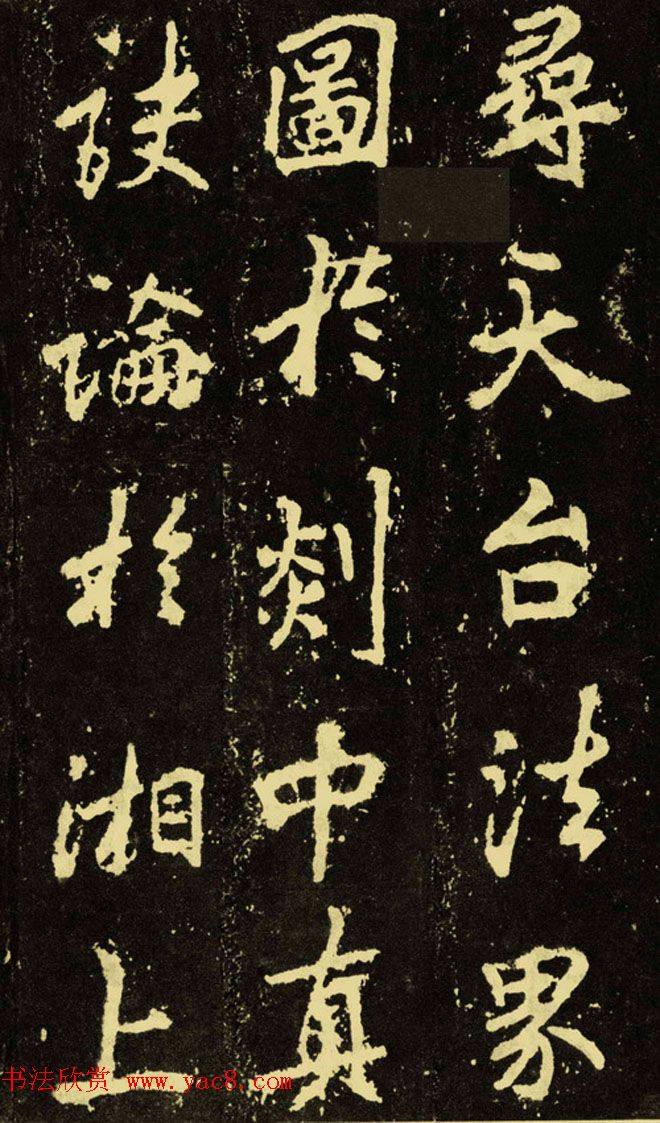 尋天台法界
圖於剡中真
訣論於湘上
书法欣赏 www.yac8.com